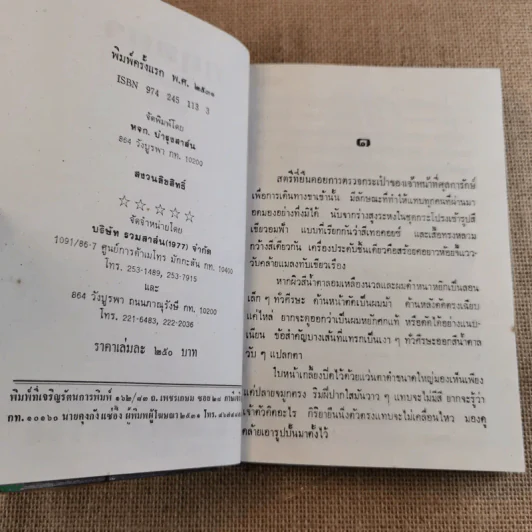 พิมพ์ครั้งแรก พ.ศ. ๒๕๓๑
ISBN 974 245 112 3
จัดพิมพ์โดย
หจก. บำรุงสาส์น
864 วังบูรพา กท. 10200
สงวนลิขสิทธิ์
☆☆.☆☆☆
จัดจำหน่ายโดย
บริษัท รวมสาส์น(1977) จำกัด
1091/86-7 ศูนย์การค้าเมโทร มักกะสัน กท. 10400
โทร. 253-1489, 253-7915
และ
864 วังบูรพา ถนนภาณุรังษี กท. 10200
โทร. 221-6483, 222-2036
ราคาเล่มละ ๒๕๐ บาท
พิมพ์ที่เจริญรัตนการพิมพ์ ๑๖๒/๔๓ ถ. เพชรเกษม ซอย ๒๔
กท. ๑๐๑๖๐ นายคุงกัง แซ่อึ้ง ผู้พิมพ์ผู้โฆษณา ๒๕๓๑ โทร.
๑
สตรีที่ยืนคอยการตรวจกระเป๋าของเจ้าหน้าที่ศุลการักษ์
เพื่อการเดินทางขาเข้านั้น มีลักษณะที่ทำให้แทบทุกคนที่ผ่านมา
อดมองอย่างทึ่งมิได้ นับจากร่างสูงระหงในชุดกระโปรงเข้ารูปสี
เขียวอมฟ้า แบบที่เรียกกันว่าสีเทอคอยซ์ และเสื้อทรงหลวม
กว้างสีเดียวกัน เครื่องประดับชิ้นเดียวคือสร้อยคอยาวห้อยจี้แวว
วับคล้ายแมลงทับเขียวเรือง
หากผิวสีน้ำตาลอมเหลืองนวลและผมดำหนาหยักเป็นลอน
เล็ก ๆ ทั่วศีรษะ ด้านหน้าตัดเป็นผมม้า ด้านหลังตัดตรงเฉียบ
แค่ไหล่ ยากจะดูออกว่าเป็นผมหยักศกแท้ หรือดัดได้อย่างแนบ-
เนียน ข้อสำคัญบางเส้นที่แทรกเป็นเงา ๆ ทั่วศีรษะออกสีน้ำตาล
วับ ๆ แปลกตา
ใบหน้าเกลี้ยงปิดไว้ด้วยแว่นตาดำขนาดใหญ่มองเห็นเพียง
แค่ปลายจมูกตรง ริมฝีปากใสมันวาว ๆ แทบจะไม่มีสี ยากจะรู้ว่า
เจ้าตัวคิดอะไร กิริยายืนนิ่งตัวตรงแทบจะไม่เคลื่อนไหว มองดู
คล้ายเอารูปปั้นมาตั้งไว้